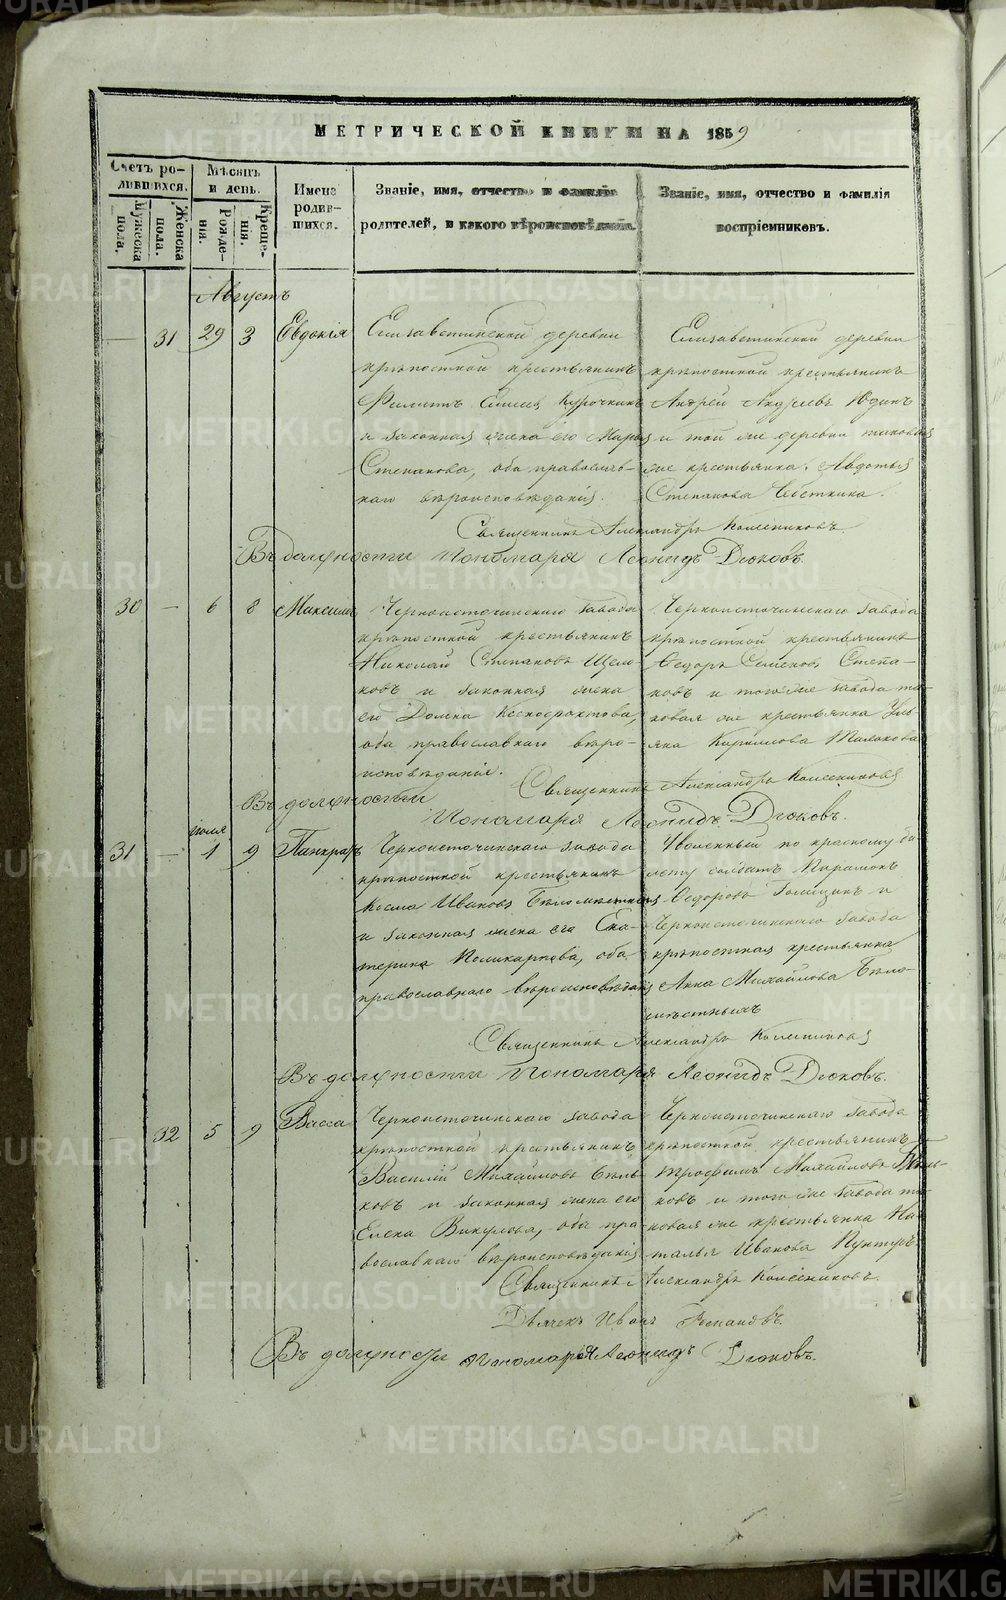 МЕТРИЧЕСКОЙ КНИГИ НА 1859
Счетъ родившихся.
Мужеска пола.
Женска пола.
Мѣсяцъ и день.
Рожденія.
Крещенія.
Имена родившихся.
Званіе, имя, отчество и фамилія родителей, и какого вѣроисповѣданія.
Званіе, имя, отчество и фамилія воспріемниковъ.
Августъ
— 31 29 3 Евдокія
Елизаветинской деревни
крѣпостной крестьянинъ
Курочкинъ
и законная жена его Марья
Степанова, оба православ-
наго вѣроисповѣданія.
Елизаветинской деревни
крѣпостной крестьянинъ
Андрей Андреевъ Юдинъ
и той же деревни таковая
же крестьянка Авдотья
Степанова
Священникъ Александръ Колесниковъ
Въ должности Пономаря Леонидъ Дюковъ.
30 — 6 8 Максимъ
Черноисточинскаго завода
крѣпостной крестьянинъ
Николай Степановъ Щел-
ковъ и законная жена
его Домна
оба православнаго вѣро-
исповѣданія.
Черноисточинскаго завода
крѣпостной крестьянинъ
Ѳедоръ Семеновъ Степа-
новъ и того же завода та-
ковая же крестьянка Уль-
яна Кирилова
Священникъ Александръ Колесниковъ
Въ должности
Пономаря Леонидъ Дюковъ.
31 — 1 9 Панкратъ
Черноисточинскаго завода
крѣпостной крестьянинъ
Косма Ивановъ
и законная жена его Ека-
терина Поликарпова, оба
православнаго вѣроисповѣданія
Уволенный по красному би-
лету солдатъ Парамонъ
Ѳедоровъ и
Черноисточинскаго завода
крѣпостная крестьянка
Анна Михайлова Бѣло-
мѣстныхъ
Священникъ Александръ Колесниковъ
Въ должности Пономаря Леонидъ Дюковъ.
— 32 5 9 Васса
Черноисточинскаго завода
крѣпостной крестьянинъ
Василій Михайловъ Бѣль-
ковъ и законная жена его
Елена Викулова, оба пра-
вославнаго вѣроисповѣданія
Черноисточинскаго завода
крѣпостной крестьянинъ
Трофимъ Михайловъ Бѣль-
ковъ и того же завода та-
ковая же крестьянка На-
талья Иванова
Священникъ Александръ Колесниковъ.
Дьячекъ Иванъ
Въ должности Пономаря Леонидъ Дюковъ.
METRIKI.GASO-URAL.RU